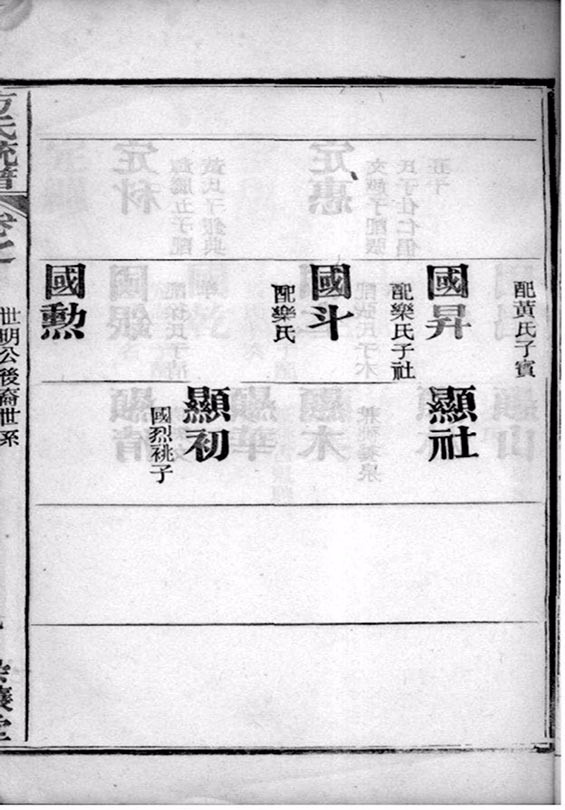 配黃氏子賓
國昇
配欒氏子社
國斗
配欒氏
國勲
顯社
顯初
國烈祧子
方氏統譜
卷之
世明公後裔世系